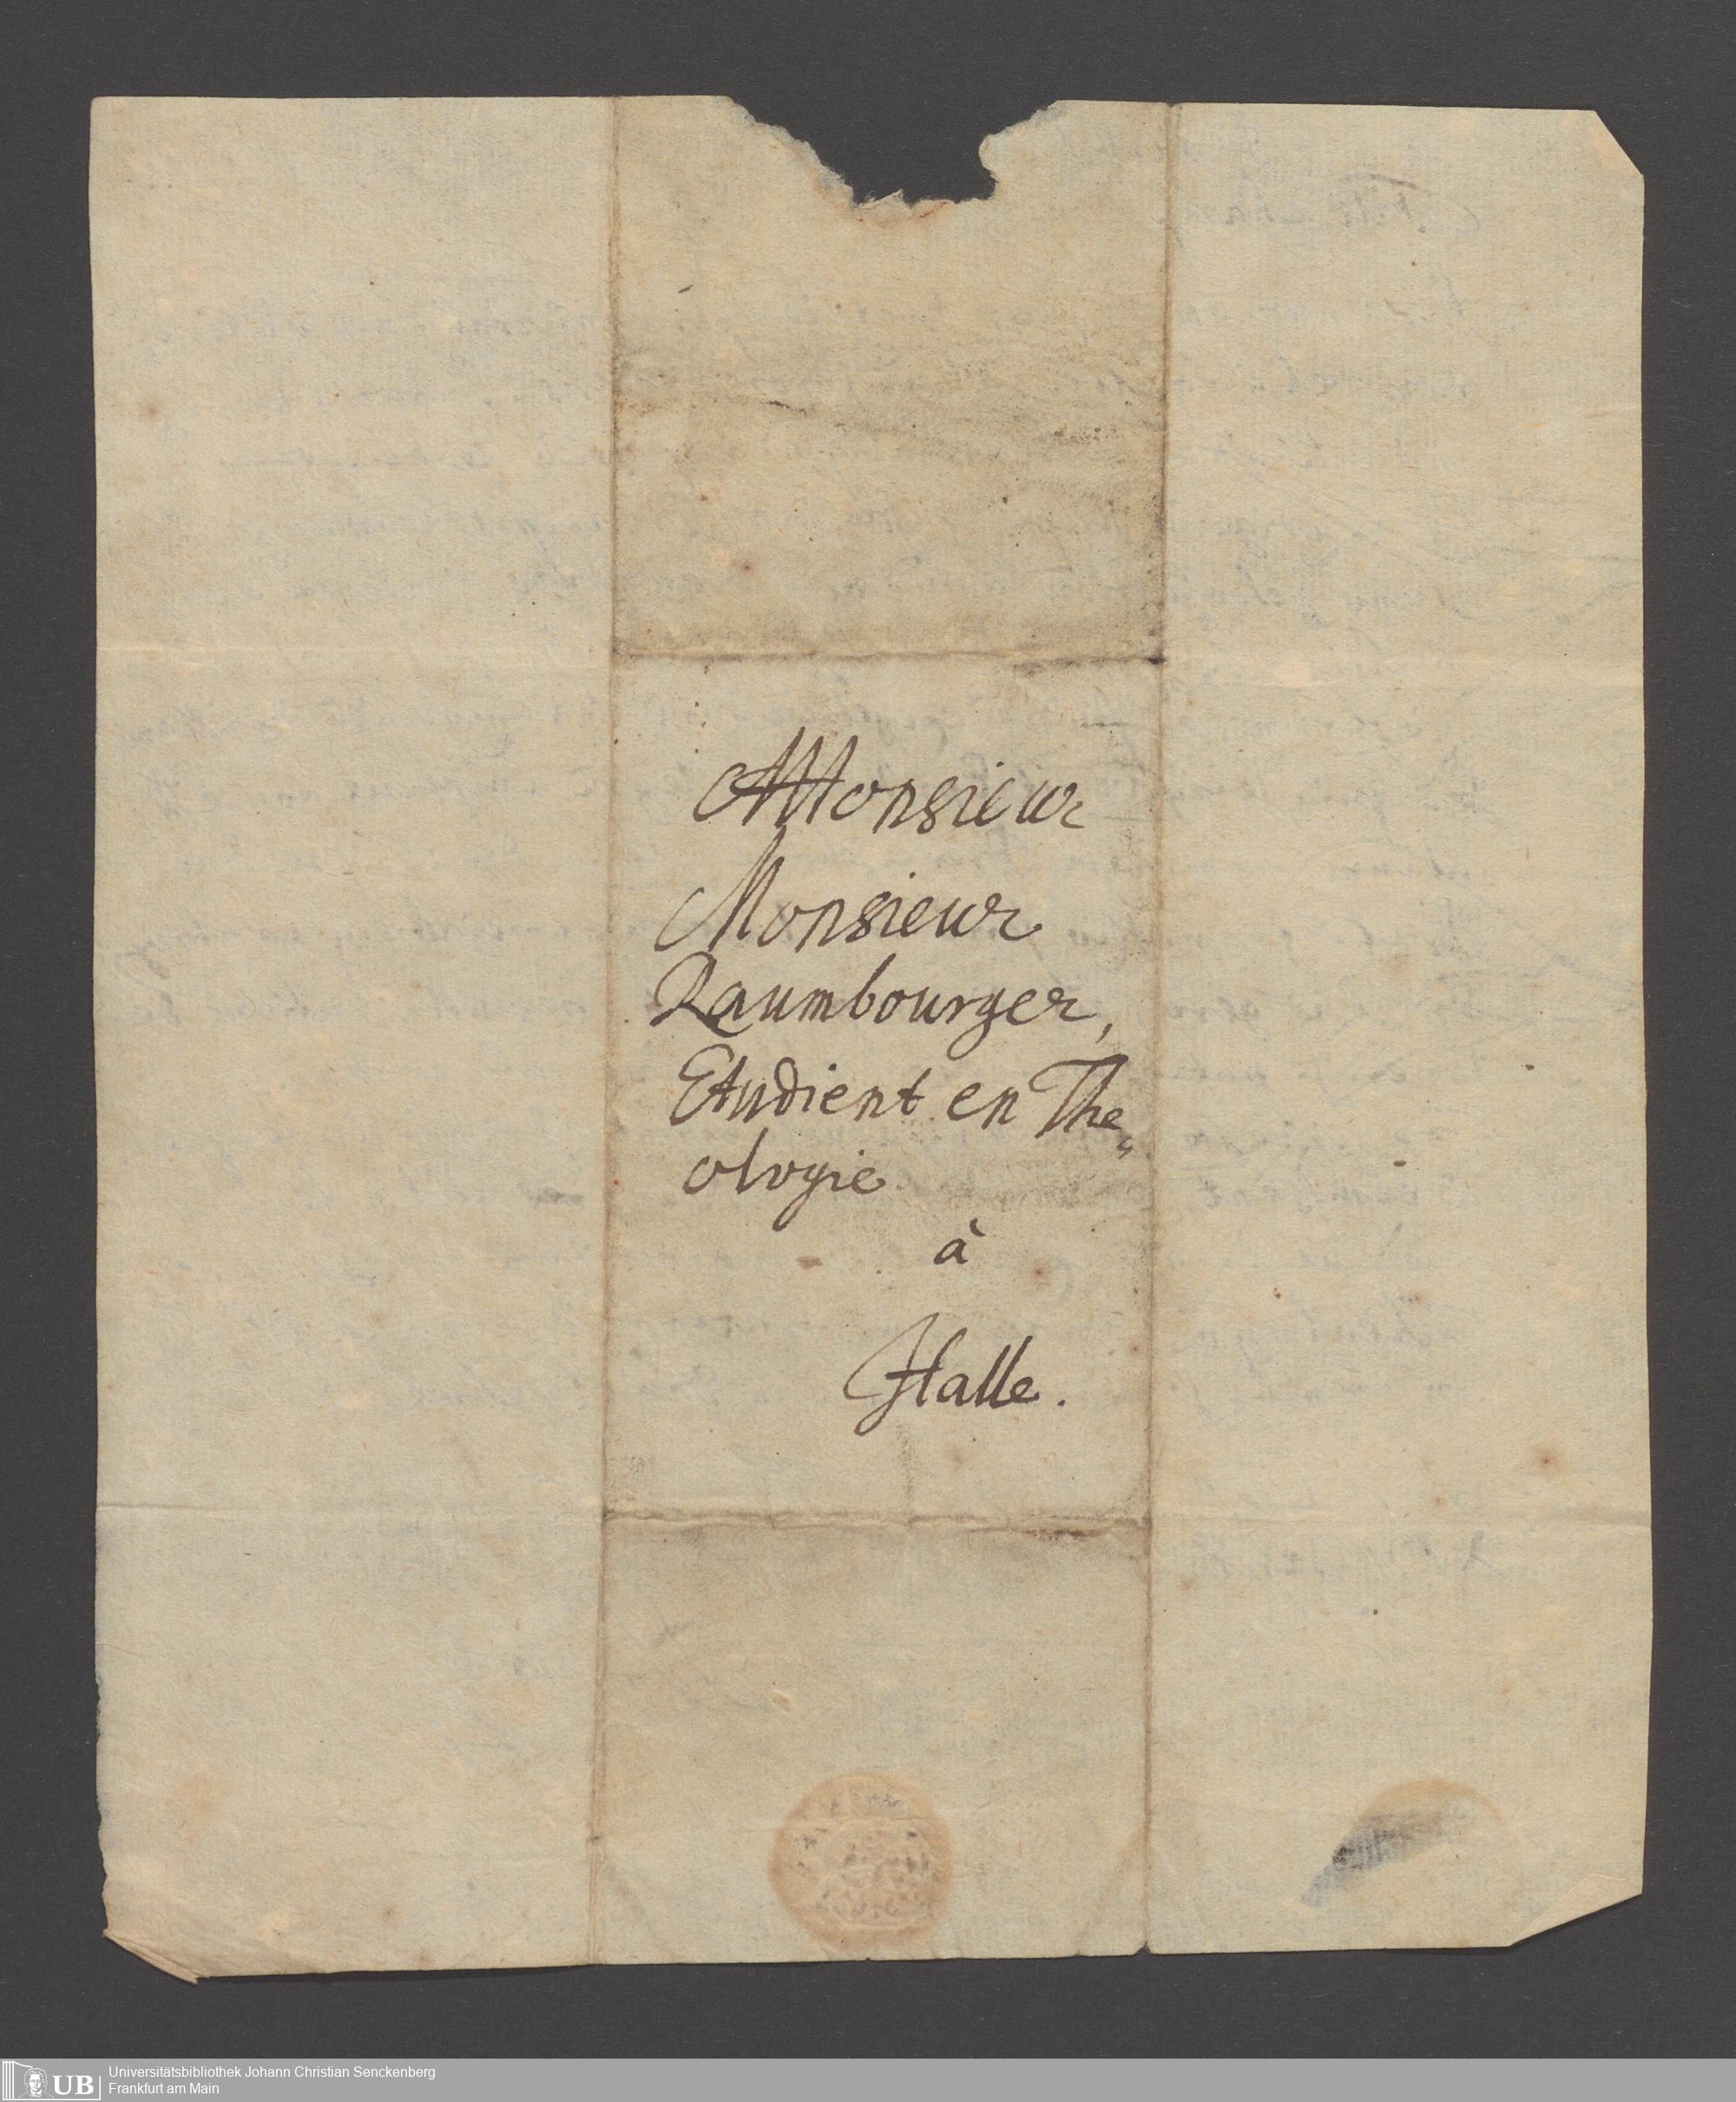 A Monsieur
Monsieur
Raumbourger,
Etudient en The=
ologie
à
Halle.
UB
Universitätsbibliothek Johann Christian Senckenberg
Frankfurt am Main